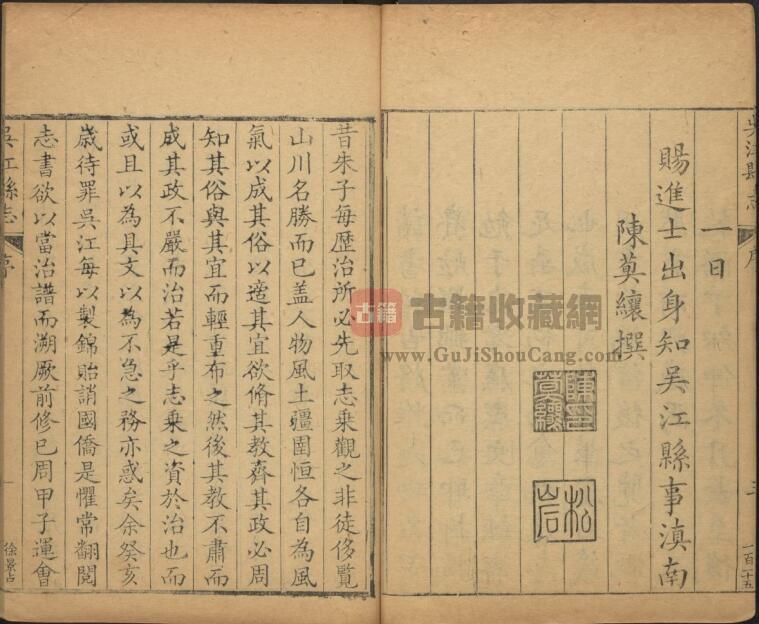 吳江縣志
序
三
一百二十五
一日
賜進士出身知吳江縣事滇南
陳䔳纕撰
陳印䔳纕
松岩
昔朱子每歷治所必先取志乗觀之非徒侈覽
山川名勝而已盖人物風土疆圉恒各自為風
氣以成其俗以適其宜欲脩其教齊其政必周
知其俗與其宜而輕重布之然後其教不肅而
成其政不嚴而治若是乎志乗之資於治也而
或且以為具文以為不急之務亦惑矣余癸亥
歲待罪吳江每以製錦貽誚國僑是懼常翻閲
志書欲以當治譜而溯厥前修已周甲子運會
吳江縣志
序
一
徐景占
古籍
古籍收藏網
www.GuJiShouCang.com